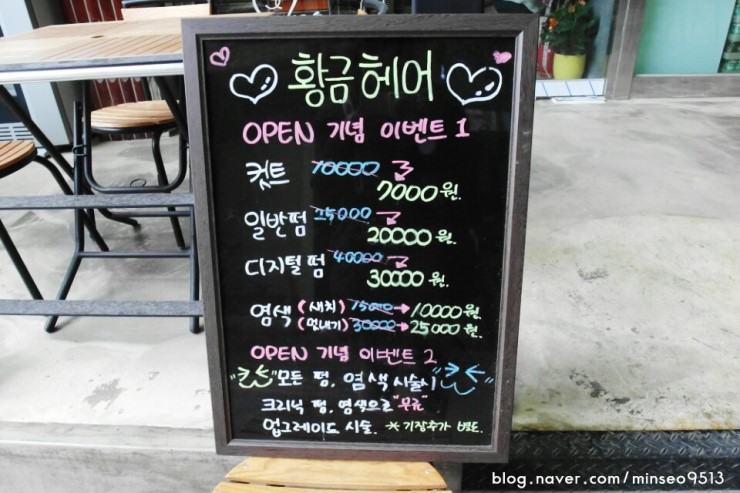 황금헤어
OPEN 기념 이벤트 1
컷트 10000 7000원.
일반펌 25000 20000원.
디지털펌 40000 30000원.
염색 (새치) 15000 10000원.
(멋내기) 30000 25000원.
OPEN 기념 이벤트 2
모든 펌, 염색 시술시
크리닉 펌, 염색으로 "무료"
업그레이드 시술. *기장추가 별도.
blog.naver.com/minseo9513